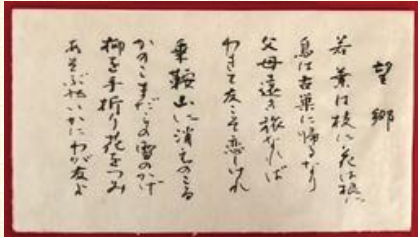 望郷
若葉は枝に花は根に
鳥は古巣に帰るなり
父母遠き旅なれば
わきて友こそ恋しけれ
乗鞍山に消えのこる
かのこまだらの雪のかげ
柳を手折り花をつみ
あそぶやいかにわが友よ